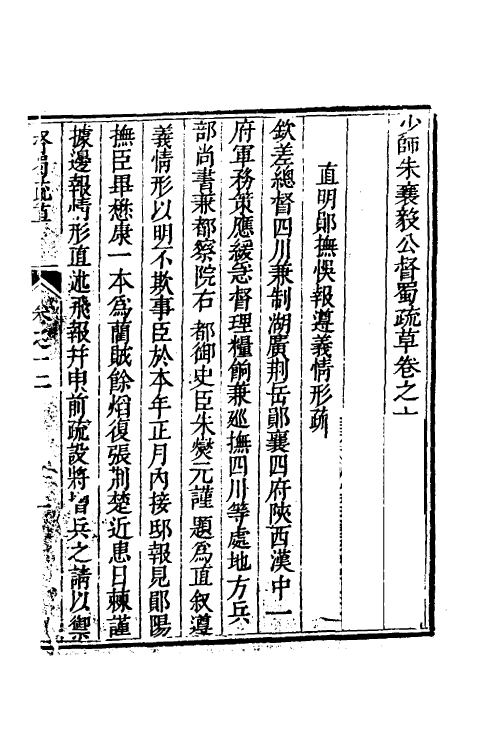 少師朱襄毅公督蜀疏草卷之十
直明鄖撫悞報遵義情形疏
欽差總督四川兼制湖廣荆岳鄖襄四府陝西漢中一
府軍務策應緩急督理糧餉兼巡撫四川等處地方兵
部尚書兼都察院右都御史臣朱燮元謹題為直叙遵
義情形以明不欺事臣於本年正月內接邸報見鄖陽
撫臣畢懋康一本為藺賊餘熖復張荆楚近患日棘謹
據邊報情形直述飛報幷申前疏設將増兵之請以禦
督蜀疏草
卷之十